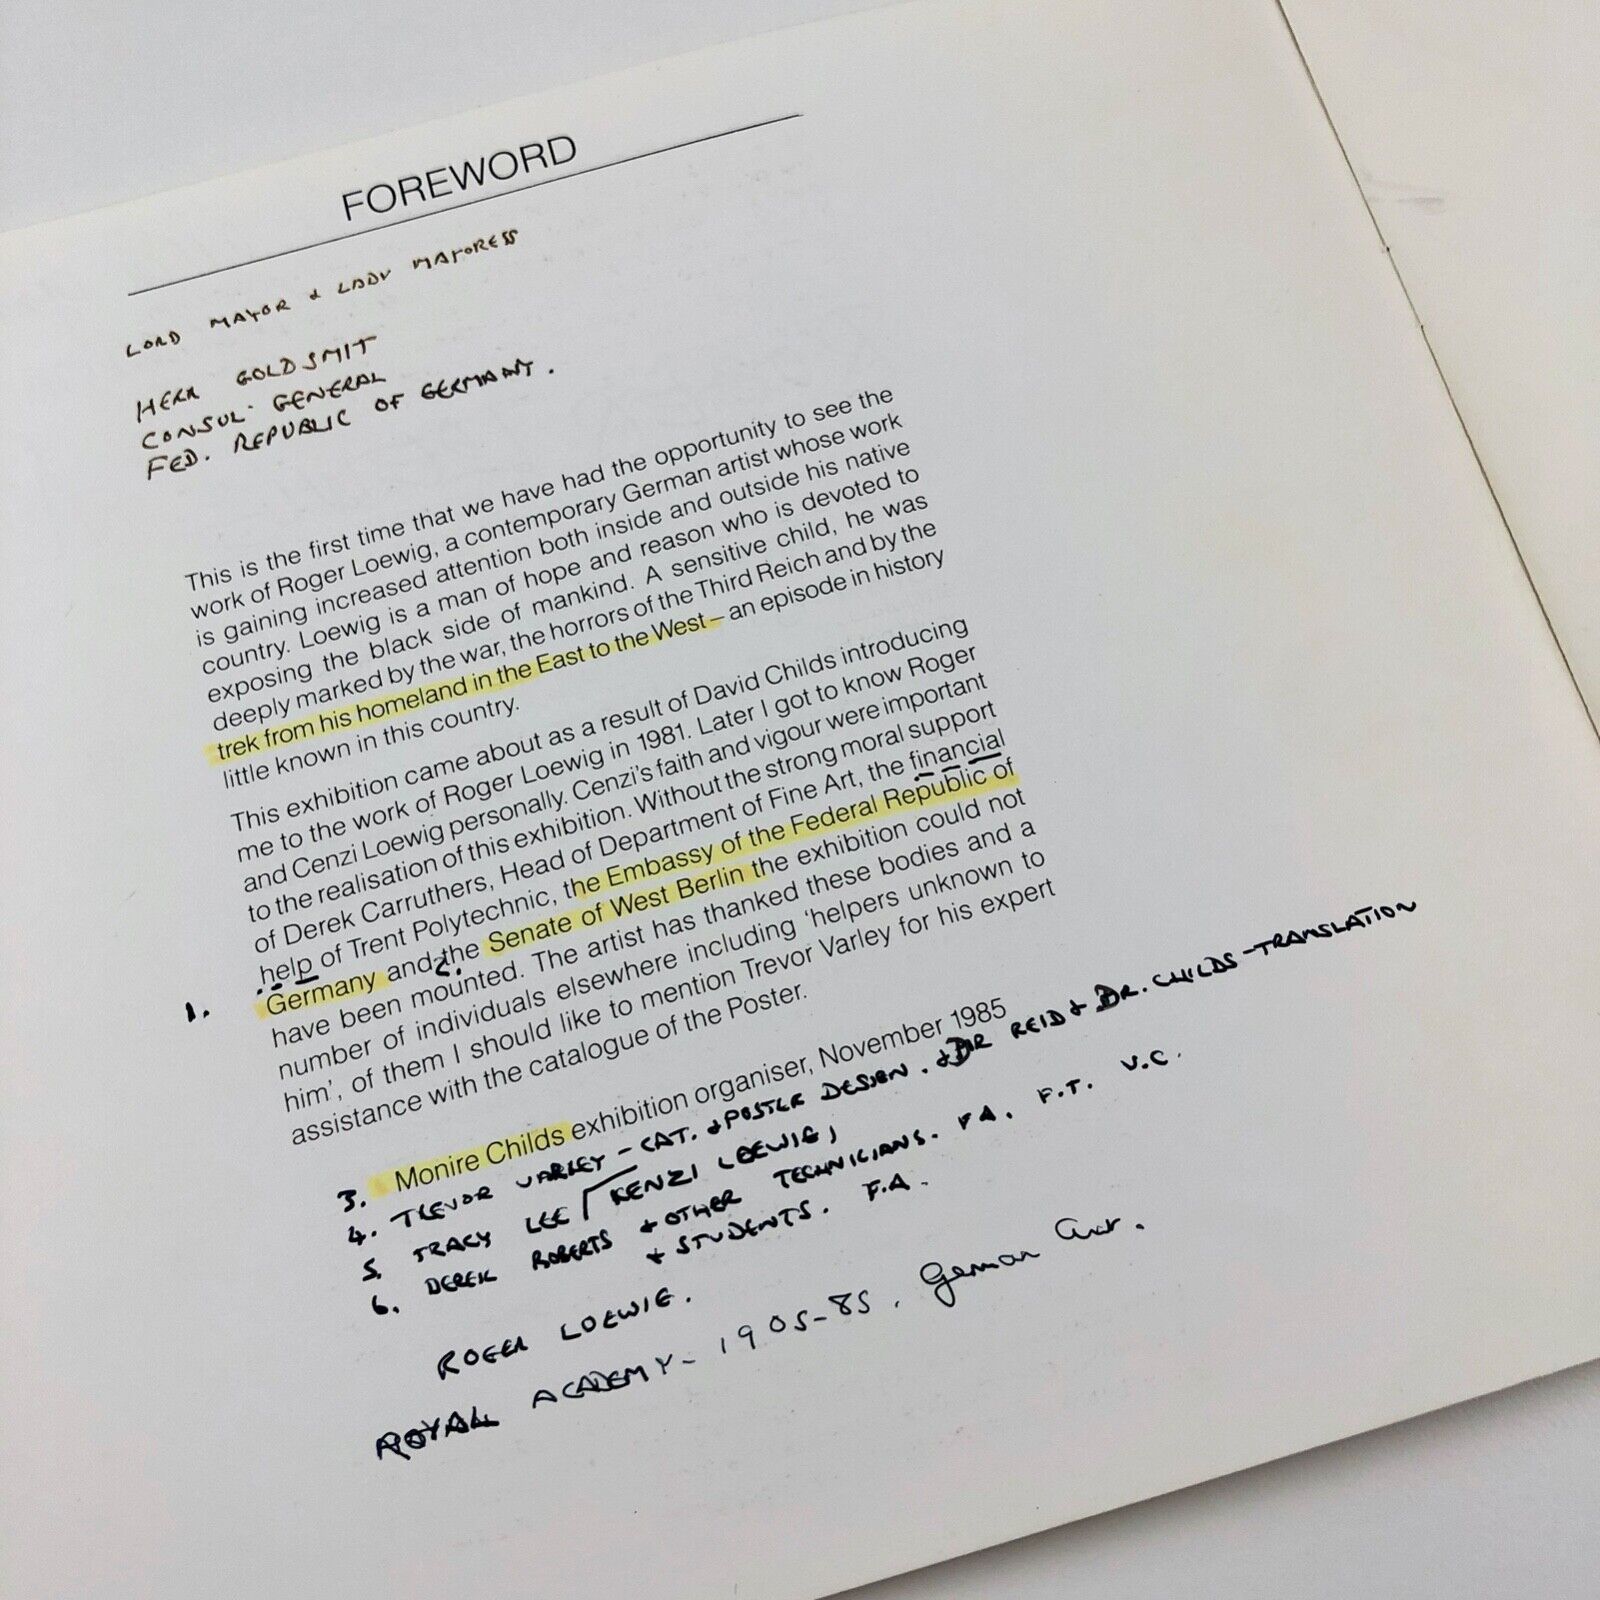 FOREWORD
LORD MAYOR & LADY MAYORESS
HERR GOLDSMIT
CONSUL. GENERAL
FED. REPUBLIC OF GERMANY.
This is the first time that we have had the opportunity to see the
work of Roger Loewig, a contemporary German artist whose work
is gaining increased attention both inside and outside his native
country. Loewig is a man of hope and reason who is devoted to
exposing the black side of mankind. A sensitive child, he was
deeply marked by the war, the horrors of the Third Reich and by the
trek from his homeland in the East to the West – an episode in history
little known in this country.
This exhibition came about as a result of David Childs introducing
me to the work of Roger Loewig in 1981. Later I got to know Roger
and Cenzi Loewig personally. Cenzi's faith and vigour were important
to the realisation of this exhibition. Without the strong moral support
of Derek Carruthers, Head of Department of Fine Art, the financial
help of Trent Polytechnic, the Embassy of the Federal Republic of
1. Germany and 2. the Senate of West Berlin the exhibition could not
have been mounted. The artist has thanked these bodies and a
number of individuals elsewhere including 'helpers unknown to
him', of them I should like to mention Trevor Varley for his expert
assistance with the catalogue of the Poster.
3. Monire Childs exhibition organiser, November 1985
4. TREVOR VARLEY – CAT. & POSTER DESIGN. & DR REID & DR. CHILDS – TRANSLATION
5. TRACY LEE / KENZI LOEWIG,
6. DEREK ROBERTS & OTHER TECHNICIANS. F.A. F.T. V.C.
& STUDENTS. F.A.
ROGER LOEWIG.
ROYAL ACADEMY – 1905-85. German Art.